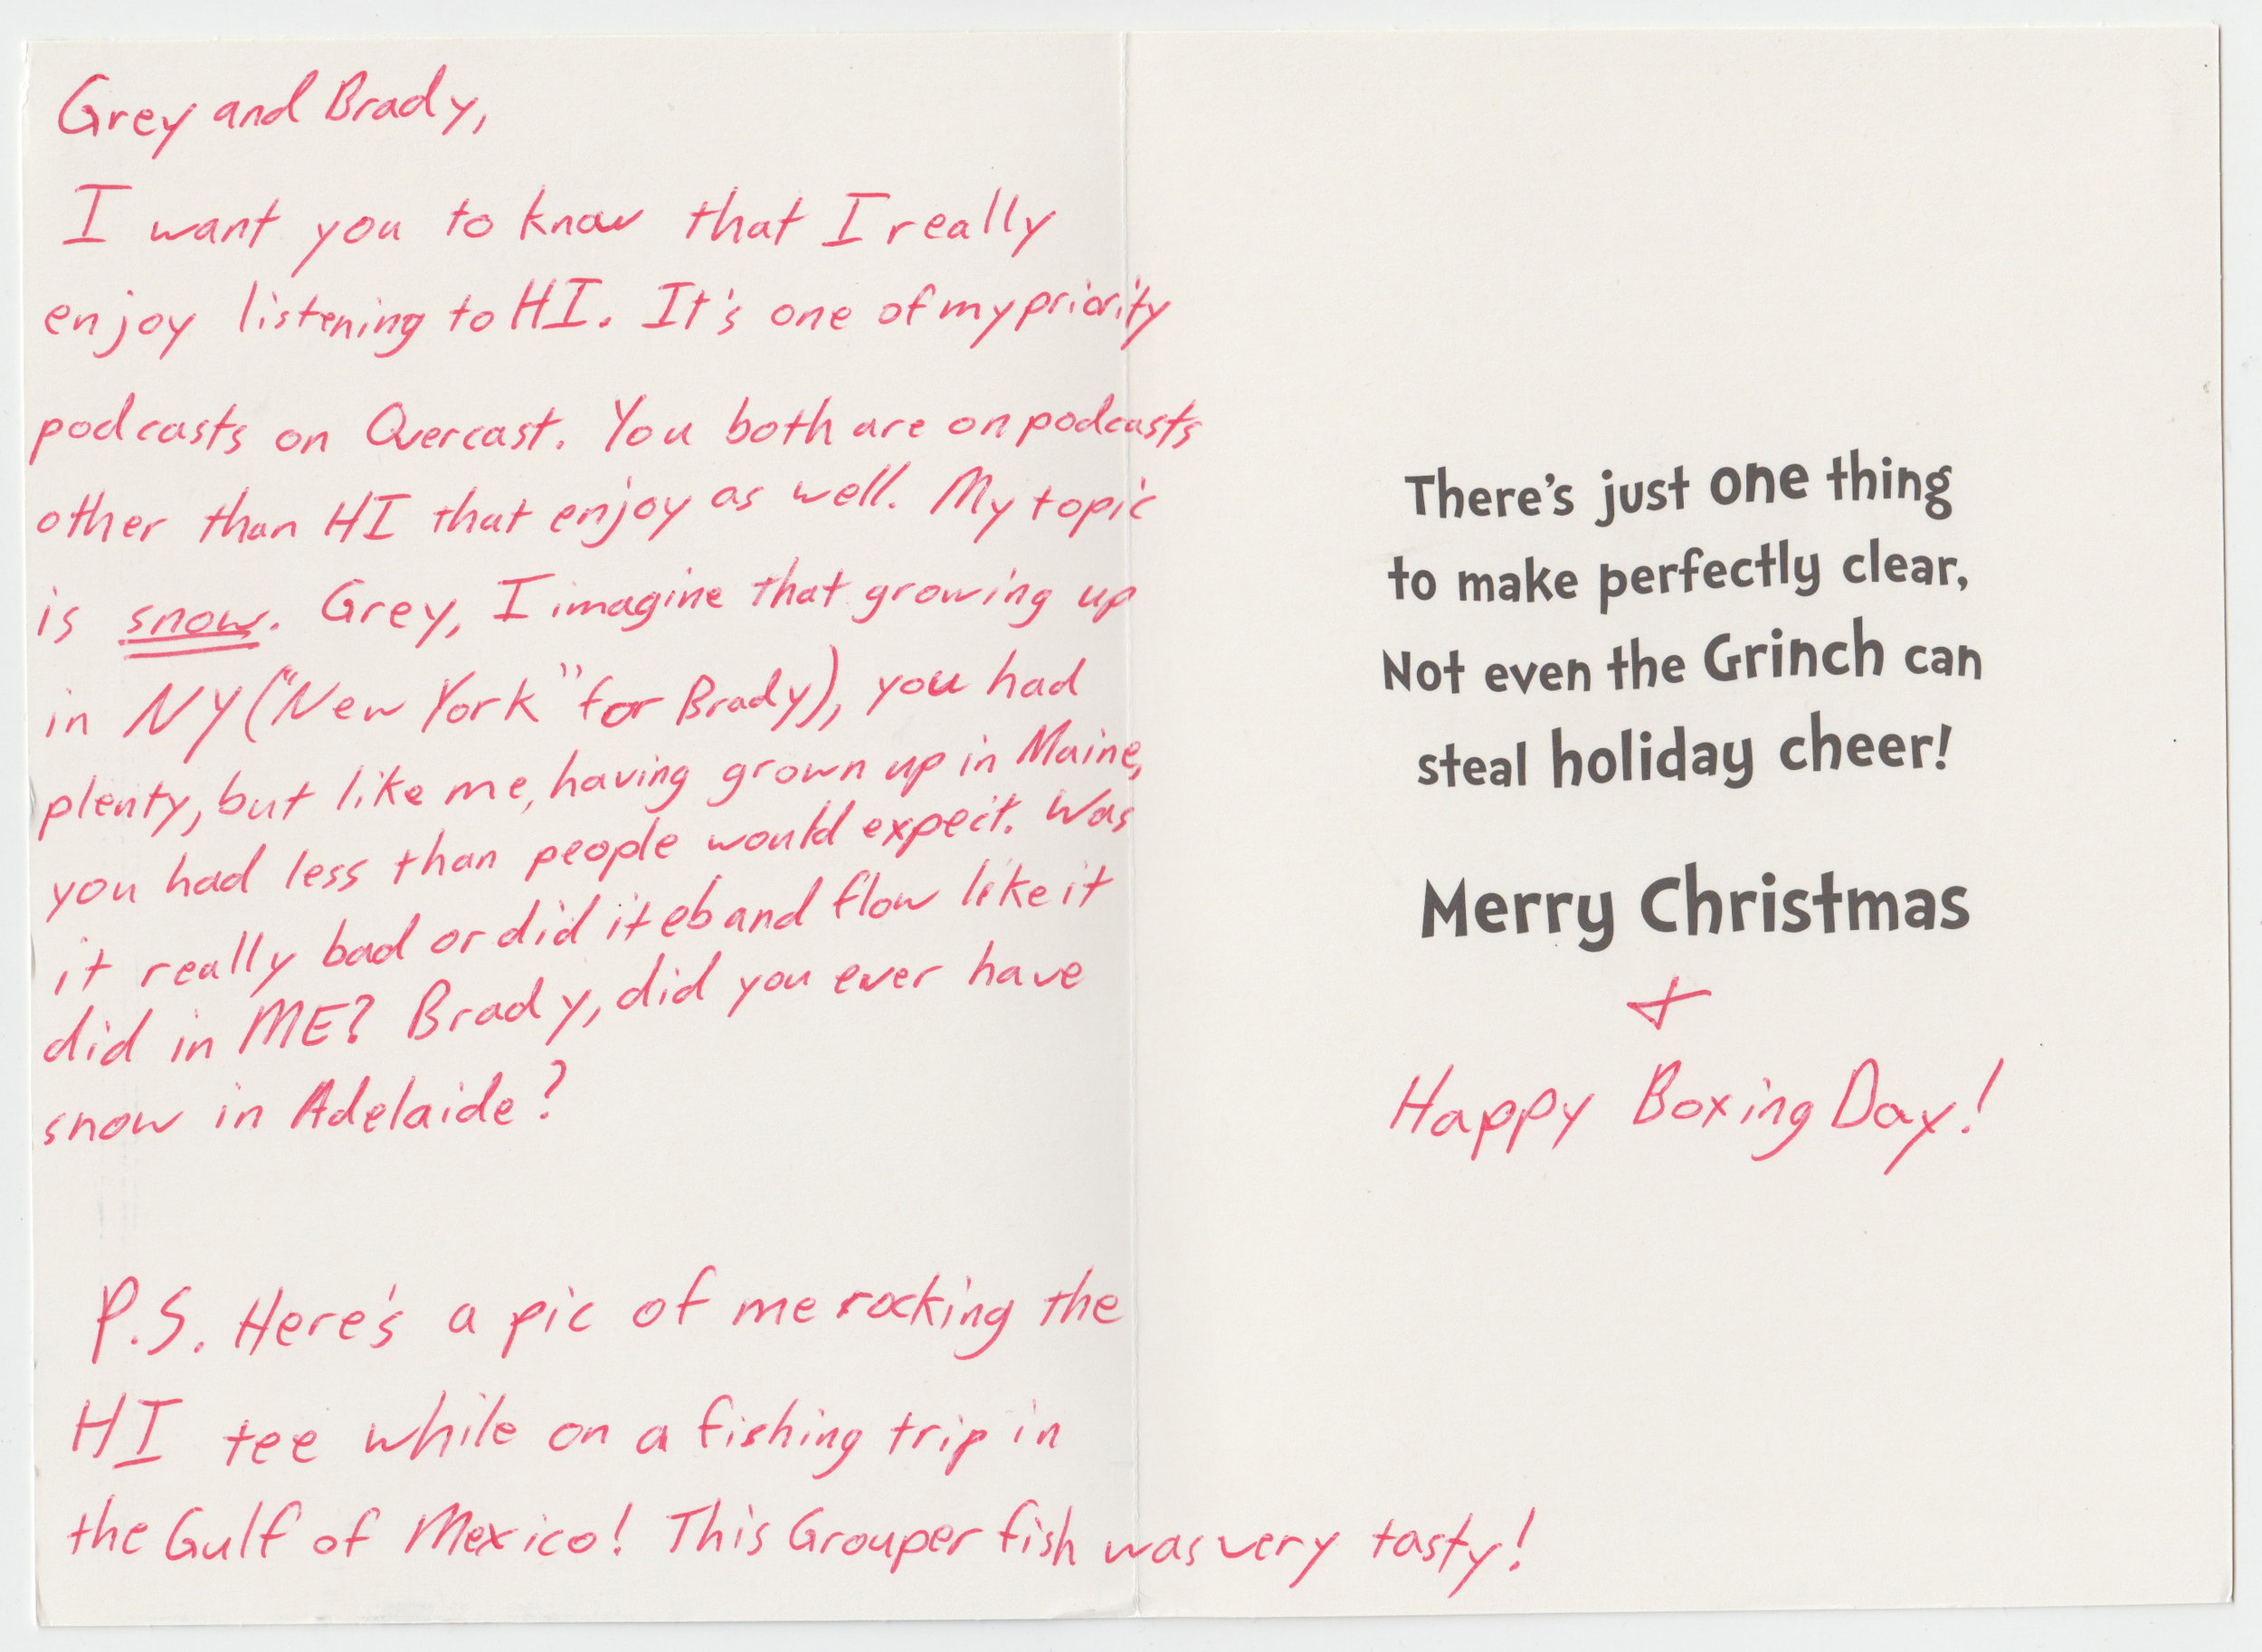 Grey and Brady,
I want you to know that I really
enjoy listening to HI. It's one of my priority
podcasts on Overcast. You both are on podcasts
other than HI that enjoy as well. My topic
is snow. Grey, I imagine that growing up
in NY ("New York" for Brady), you had
plenty, but like me, having grown up in Maine,
you had less than people would expect. Was
it really bad or did it eb and flow like it
did in ME? Brady, did you ever have
snow in Adelaide?
P.S. Here's a pic of me rocking the
HI tee while on a fishing trip in
the Gulf of Mexico! This Grouper fish was very tasty!
There's just one thing
to make perfectly clear,
Not even the Grinch can
steal holiday cheer!
Merry Christmas
+
Happy Boxing Day!